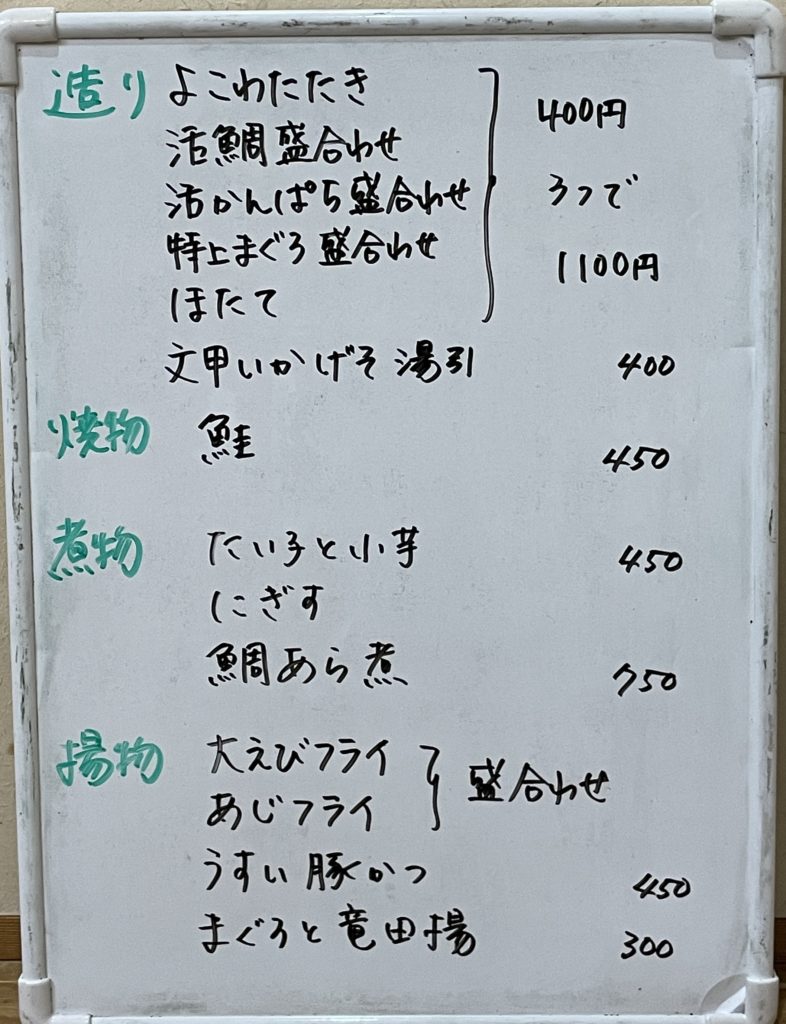 造り よこわたたき
活鯛盛合わせ
活かんぱち盛合わせ
特上まぐろ盛合わせ
ほたて
400円
3つで
1100円
文甲いかげそ湯引 400
焼物 鮭 450
煮物 たい子と小芋 450
にぎす
鯛あら煮 750
揚物 大えびフライ
あじフライ
盛合わせ
うすい豚かつ 450
まぐろと竜田揚 300